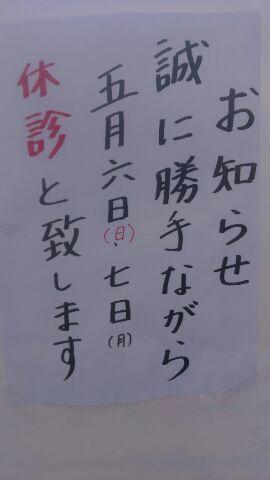 お知らせ
誠に勝手ながら
五月六日(日)、七日(月)
休診と致します